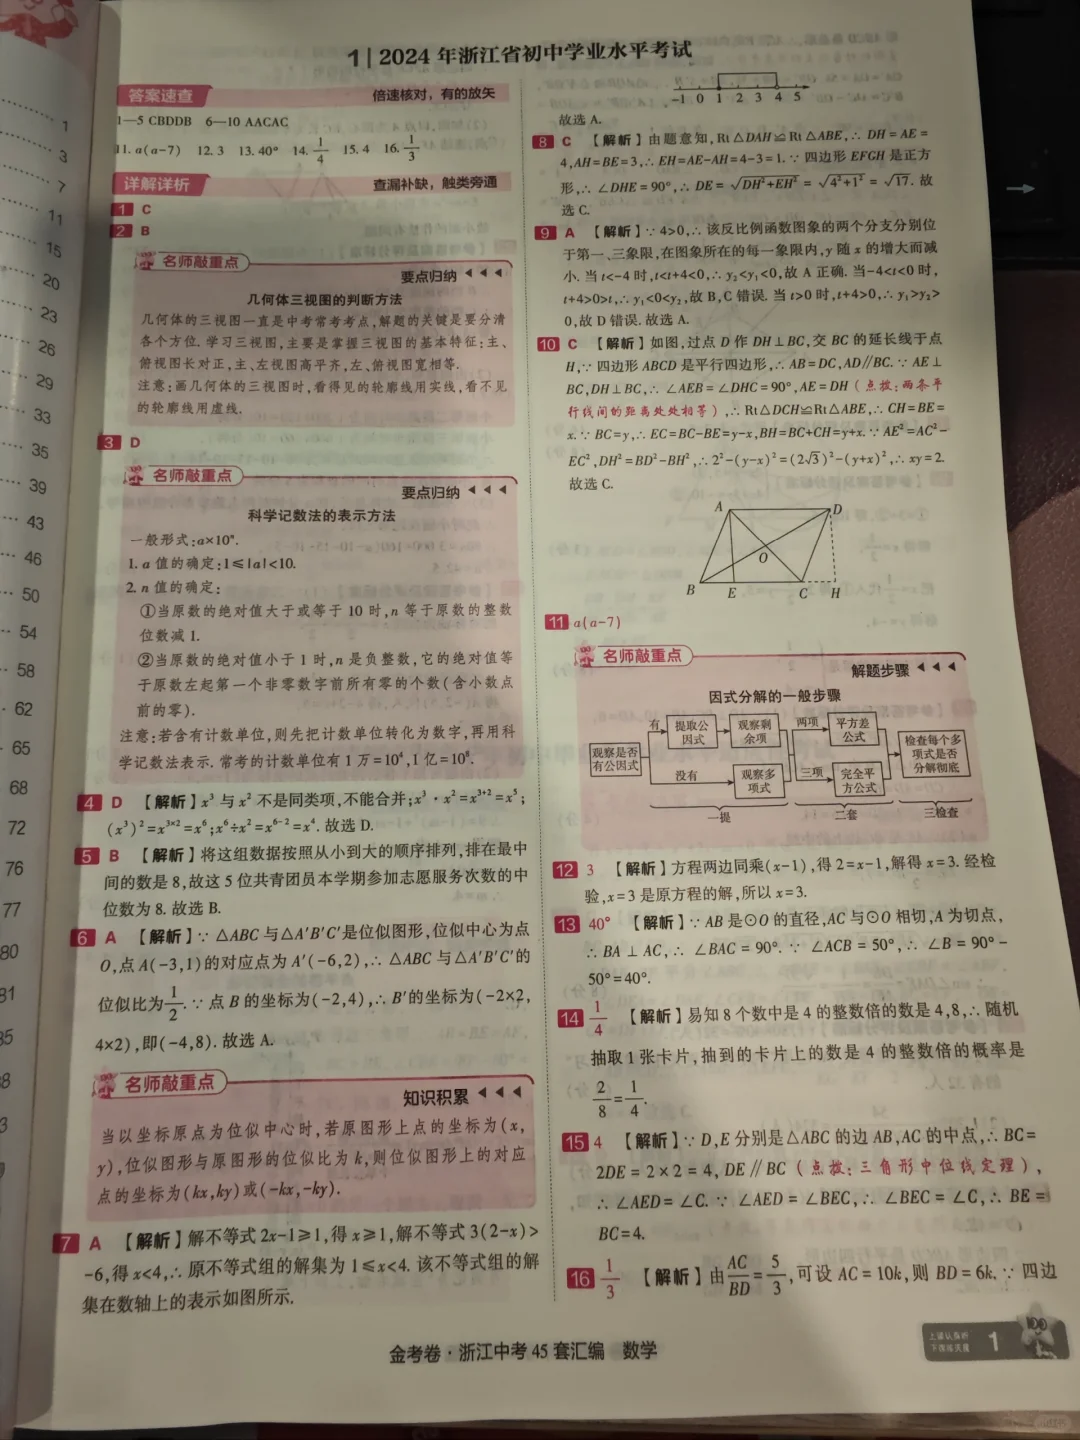 1
3
7
11
15
20
23
26
29
33
35
39
43
46
50
54
58
62
65
68
72
76
77
80
81
1|2024年浙江省初中学业水平考试
答案速查 倍速核对,有的放矢
1—5 CBDDB 6—10 AACAC
11. a(a-7) 12. 3 13. 40° 14. 1/4 15. 4 16. 1/3
详解详析 查漏补缺,触类旁通
1 C
2 B
名师敲重点
要点归纳
几何体三视图的判断方法
几何体的三视图一直是中考常考考点,解题的关键是要分清
各个方位.学习三视图,主要是掌握三视图的基本特征:主、
俯视图长对正,主、左视图高平齐,左、俯视图宽相等.
注意:画几何体的三视图时,看得见的轮廓线用实线,看不见
的轮廓线用虚线.
3 D
名师敲重点
要点归纳
科学记数法的表示方法
一般形式:a×10ⁿ.
1. a 值的确定:1≤|a|<10.
2. n 值的确定:
①当原数的绝对值大于或等于 10 时,n 等于原数的整数
位数减 1.
②当原数的绝对值小于 1 时,n 是负整数,它的绝对值等
于原数左起第一个非零数字前所有零的个数(含小数点
前的零).
注意:若含有计数单位,则先把计数单位转化为数字,再用科
学记数法表示.常考的计数单位有 1 万=10⁴,1 亿=10⁸.
4 D 【解析】x³ 与 x² 不是同类项,不能合并;x³·x²=x³⁺²=x⁵;
(x³)²=x³ˣ²=x⁶;x⁶÷x²=x⁶⁻²=x⁴.故选 D.
5 B 【解析】将这组数据按照从小到大的顺序排列,排在最中
间的数是 8,故这 5 位共青团员本学期参加志愿服务次数的中
位数为 8.故选 B.
6 A 【解析】∵ △ABC 与△A′B′C′是位似图形,位似中心为点
O,点 A(-3,1)的对应点为 A′(-6,2),∴ △ABC 与△A′B′C′的
位似比为1/2.∵ 点 B 的坐标为(-2,4),∴ B′的坐标为(-2×2,
4×2),即(-4,8).故选 A.
名师敲重点
知识积累
当以坐标原点为位似中心时,若原图形上点的坐标为(x,
y),位似图形与原图形的位似比为 k,则位似图形上的对应
点的坐标为(kx,ky)或(-kx,-ky).
7 A 【解析】解不等式 2x-1≥1,得 x≥1,解不等式 3(2-x)>
-6,得 x<4,∴ 原不等式组的解集为 1≤x<4.该不等式组的解
集在数轴上的表示如图所示.
-1 0 1 2 3 4 5
故选 A.
8 C 【解析】由题意知,Rt△DAH≌Rt△ABE,∴ DH=AE=
4,AH=BE=3,∴ EH=AE-AH=4-3=1.∵ 四边形 EFGH 是正方
形,∴ ∠DHE=90°,∴ DE=√(DH²+EH²)=√(4²+1²)=√17.故
选 C.
9 A 【解析】∵ 4>0,∴ 该反比例函数图象的两个分支分别位
于第一、三象限,在图象所在的每一象限内,y 随 x 的增大而减
小.当 t<-4 时,t<t+4<0,∴ y₂<y₁<0,故 A 正确.当-4<t<0 时,
t+4>0>t,∴ y₁<0<y₂,故 B,C 错误.当 t>0 时,t+4>0,∴ y₁>y₂>
0,故 D 错误.故选 A.
10 C 【解析】如图,过点 D 作 DH⊥BC,交 BC 的延长线于点
H,∵ 四边形 ABCD 是平行四边形,∴ AB=DC,AD∥BC.∵ AE⊥
BC,DH⊥BC,∴ ∠AEB=∠DHC=90°,AE=DH(点拨:两条平
行线间的距离处处相等),∴ Rt△DCH≌Rt△ABE,∴ CH=BE=
x.∵ BC=y,∴ EC=BC-BE=y-x,BH=BC+CH=y+x.∵ AE²=AC²-
EC²,DH²=BD²-BH²,∴ 2²-(y-x)²=(2√3)²-(y+x)²,∴ xy=2.
故选 C.
A D
O
B E C H
11 a(a-7)
名师敲重点
解题步骤
因式分解的一般步骤
观察是否有公因式
有 提取公因式 观察剩余项 两项 平方差公式
没有 观察多项式 三项 完全平方公式
检查每个多项式是否分解彻底
一提 二套 三检查
12 3 【解析】方程两边同乘(x-1),得 2=x-1,解得 x=3.经检
验,x=3 是原方程的解,所以 x=3.
13 40° 【解析】∵ AB 是⊙O 的直径,AC 与⊙O 相切,A 为切点,
∴ BA⊥AC,∴ ∠BAC=90°.∵ ∠ACB=50°,∴ ∠B=90°-
50°=40°.
14 1/4 【解析】易知 8 个数中是 4 的整数倍的数是 4,8,∴ 随机
抽取 1 张卡片,抽到的卡片上的数是 4 的整数倍的概率是
2/8=1/4.
15 4 【解析】∵ D,E 分别是△ABC 的边 AB,AC 的中点,∴ BC=
2DE=2×2=4,DE∥BC(点拨:三角形中位线定理),
∴ ∠AED=∠C.∵ ∠AED=∠BEC,∴ ∠BEC=∠C,∴ BE=
BC=4.
16 1/3 【解析】由AC/BD=5/3,可设 AC=10k,则 BD=6k.∵ 四边
金考卷·浙江中考 45 套汇编 数学
1